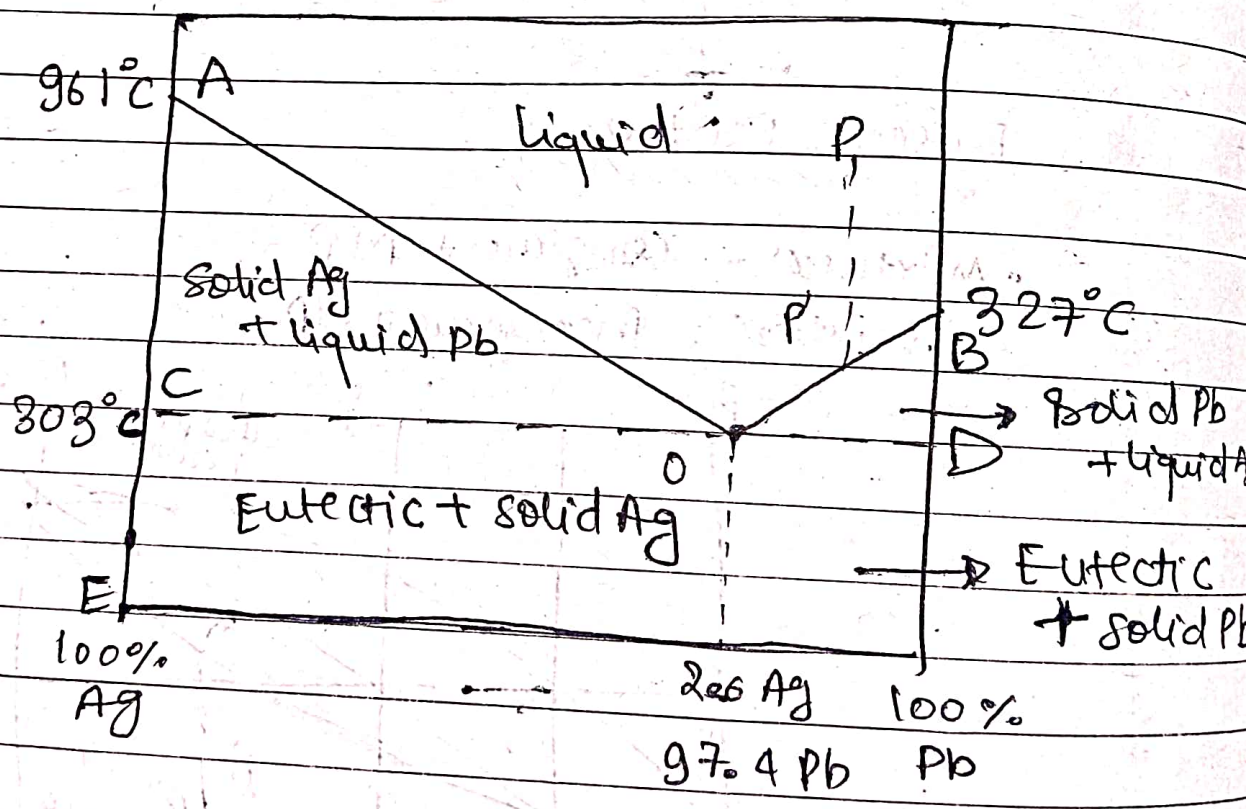 961°C A
Liquid
P
Solid Ag
+ liquid Pb
P'
327°C
B
C
303°C
Solid Pb
+ liquid A
D
O
Eutectic + solid Ag
Eutectic
+ solid Pb
E
100%
Ag
2.6 Ag
97.4 Pb
100%
Pb